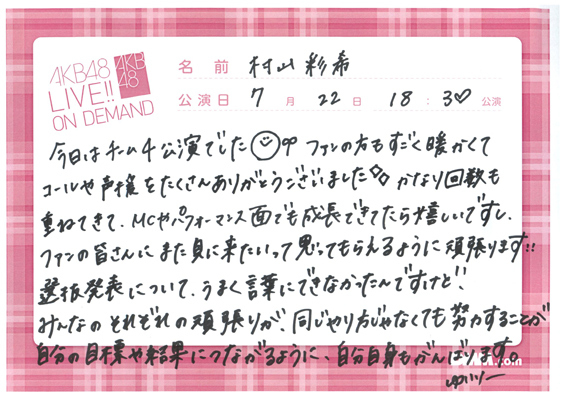 AKB48
LIVE!!
ON DEMAND
AKB
48
名前 村山彩希
公演日 7月22日 18:30 公演
今日はチーム4公演でした ファンの方もすごく暖かくて
コールや声援をたくさんありがとうございました かなり回数も
重ねてきて、MCやパフォーマンス面でも成長できてたら嬉しいですし、
ファンの皆さんにまた見に来たいって思ってもらえるように頑張ります!!
選抜発表について、うまく言葉にできなかったんですけど、
みんなのそれぞれの頑張りが、同じやり方じゃなくても努力することが
自分の目標や結果につながるように、自分自身もがんばります。
.com